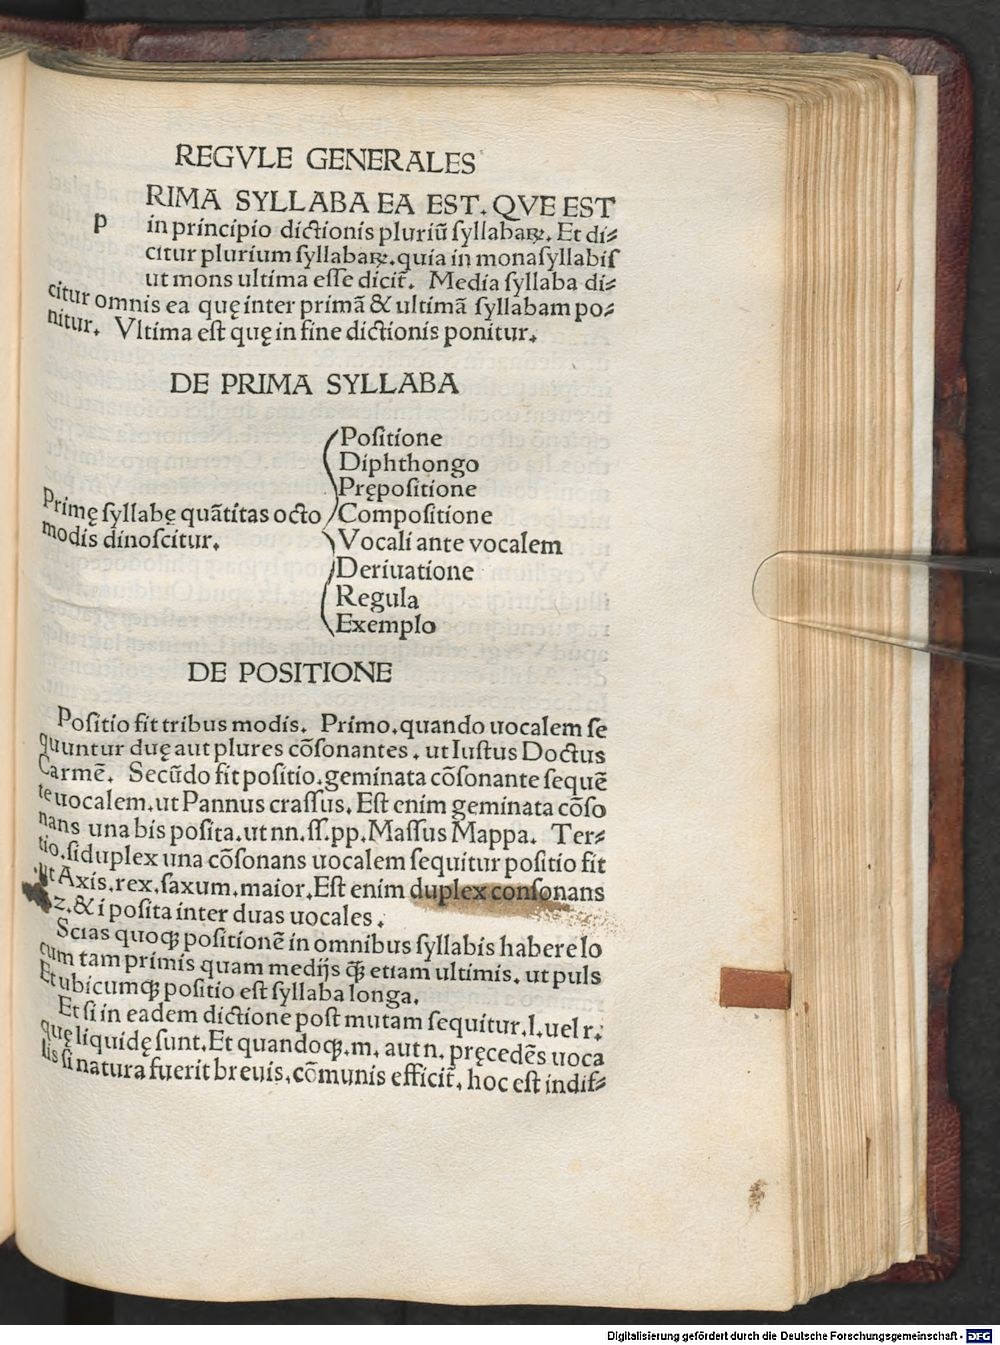 REGVLE GENERALES
p
RIMA SYLLABA EA EST. QVE EST
in principio dictionis pluriũ ſyllabaꝝ. Et di⸗
citur plurium ſyllabaꝝ. quia in monaſyllabiſ
ut mons ultima eſſe dicit̃. Media ſyllaba di⸗
citur omnis ea quę inter primã & ultimã ſyllabam po⸗
nitur. Vltima eſt quę in fine dictionis ponitur.
DE PRIMA SYLLABA
Primę ſyllabę quãtitas octo
modis dinoſcitur.
Poſitione
Diphthongo
Prępoſitione
Compoſitione
Vocali ante vocalem
Deriuatione
Regula
Exemplo
DE POSITIONE
Poſitio fit tribus modis. Primo. quando uocalem ſe
quuntur duę aut plures cõſonantes. ut Iuſtus Doctus
Carmẽ. Secũdo fit poſitio. geminata cõſonante ſequẽ
te uocalem. ut Pannus craſſus. Eſt enim geminata cõſo
nans una bis poſita. ut nn. ſſ. pp. Maſſus Mappa. Ter⸗
tio. ſi duplex una cõſonans uocalem ſequitur poſitio fit
.ut Axis. rex. ſaxum. maior. Eſt enim duplex conſonans
z. & i poſita inter duas uocales.
Scias quoqꝫ poſitionẽ in omnibus ſyllabis habere lo
cum tam primis quam medijs qꝫ̃ etiam ultimis. ut puls
Et ubicumqꝫ poſitio eſt ſyllaba longa.
Et ſi in eadem dictione poſt mutam ſequitur. l. uel r.
quę liquidę ſunt. Et quandoqꝫ. m. aut n. pręcedẽs uoca
lis ſi natura fuerit breuis. cõmunis efficit̃. hoc eſt indif⸗
Digitalisierung gefördert durch die Deutsche Forschungsgemeinschaft - DFG